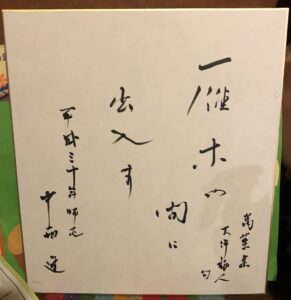 萬葉集
大伴旅人
句
雁木の
間に
出入す
平成三十年師走
中西進